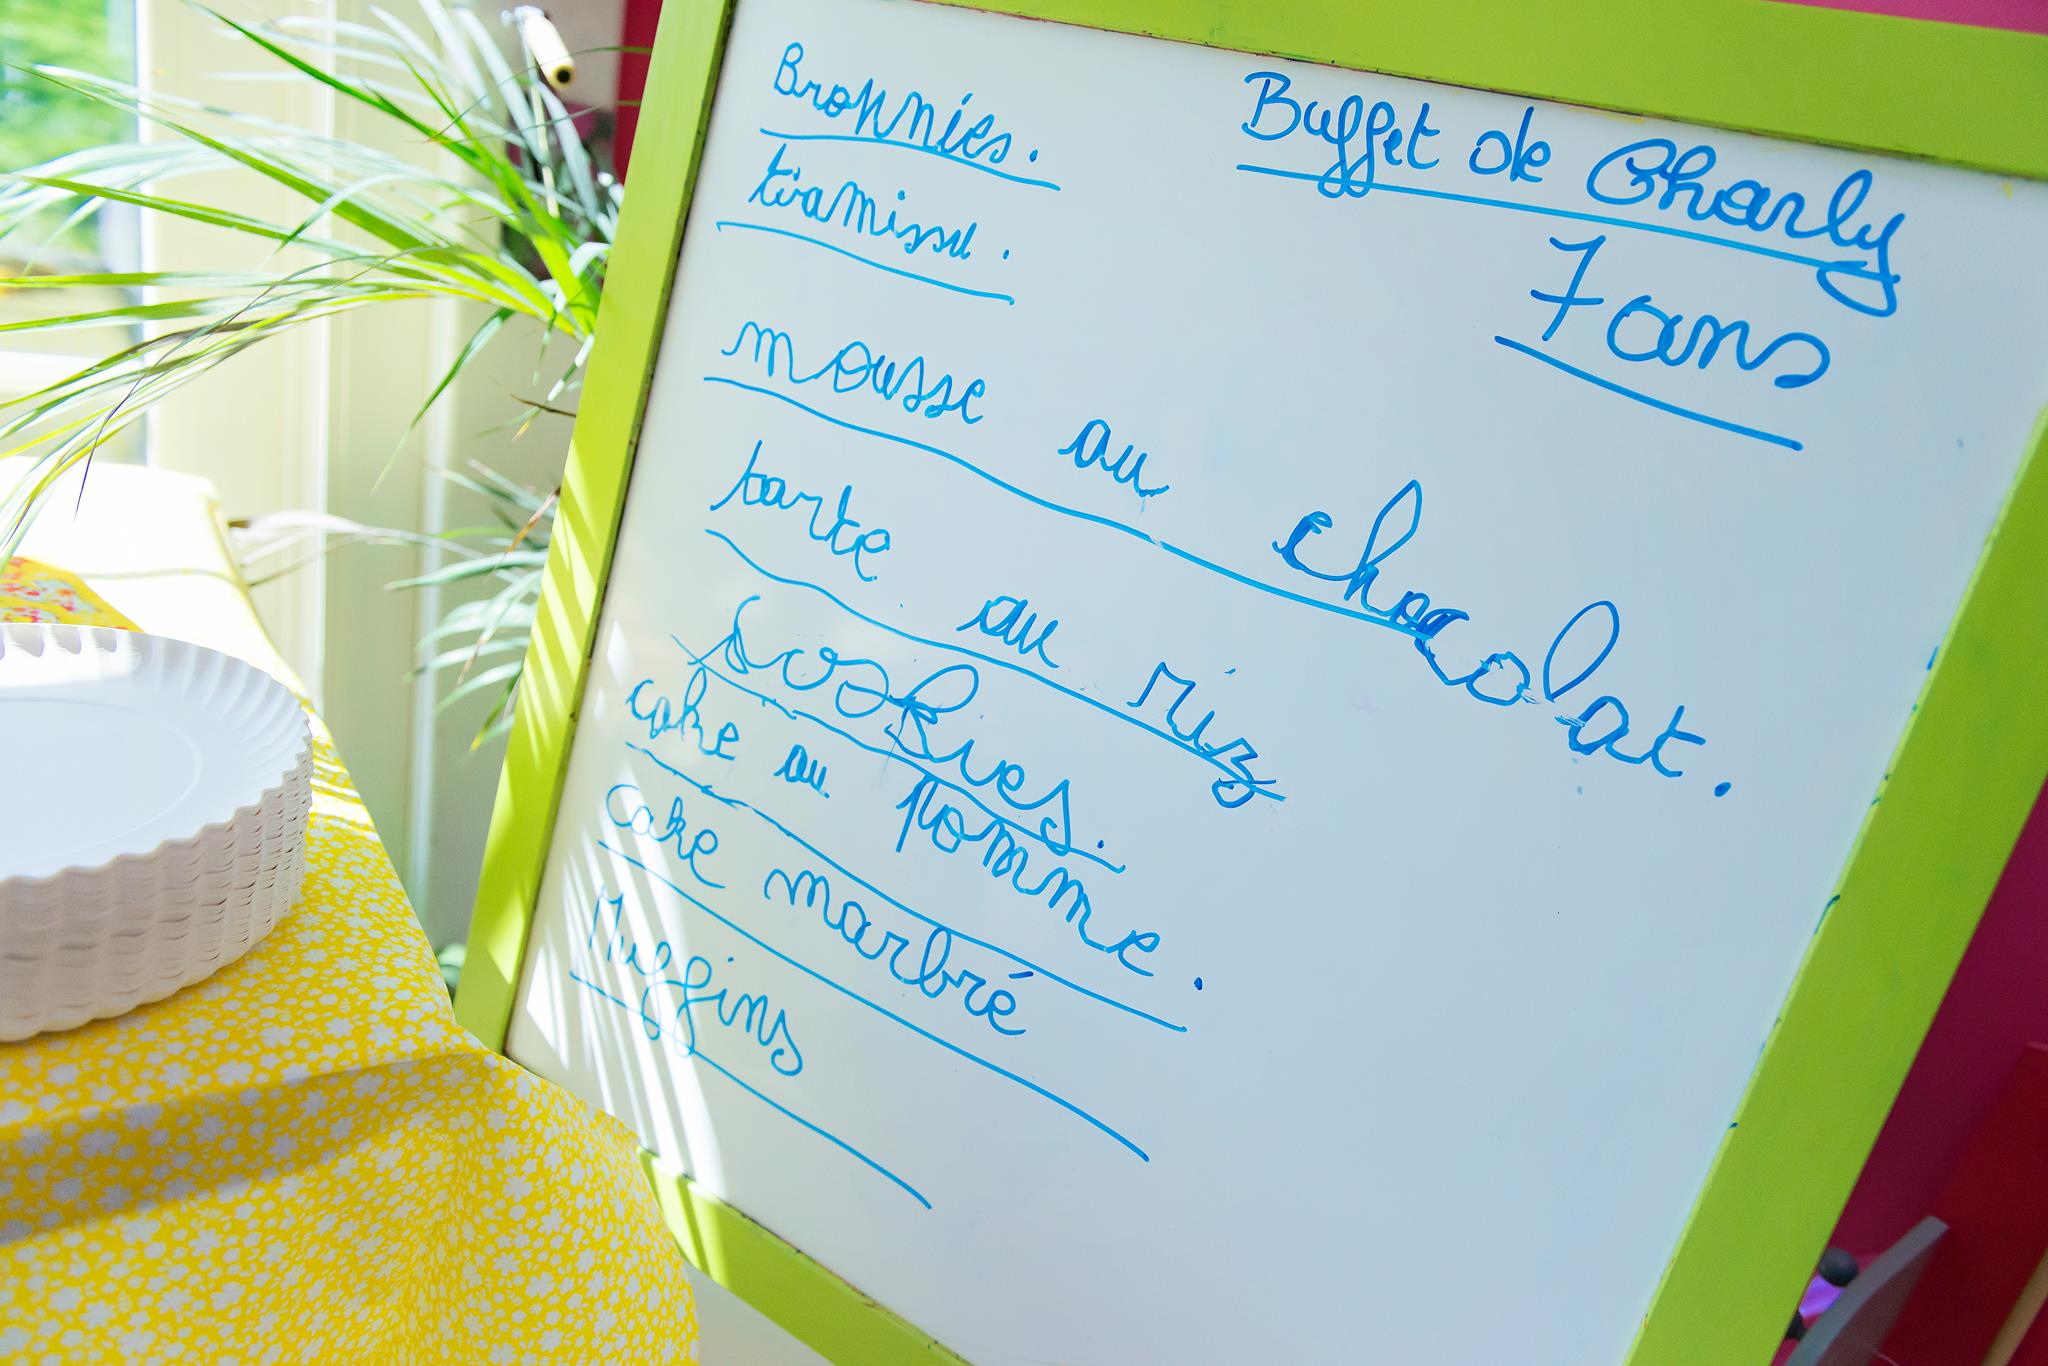 Buffet de Charly
7 ans
Brownies.
tiramissu.
mousse au chocolat.
tarte au riz
Sookies.
cake au pomme.
Cake marbré
Muffins